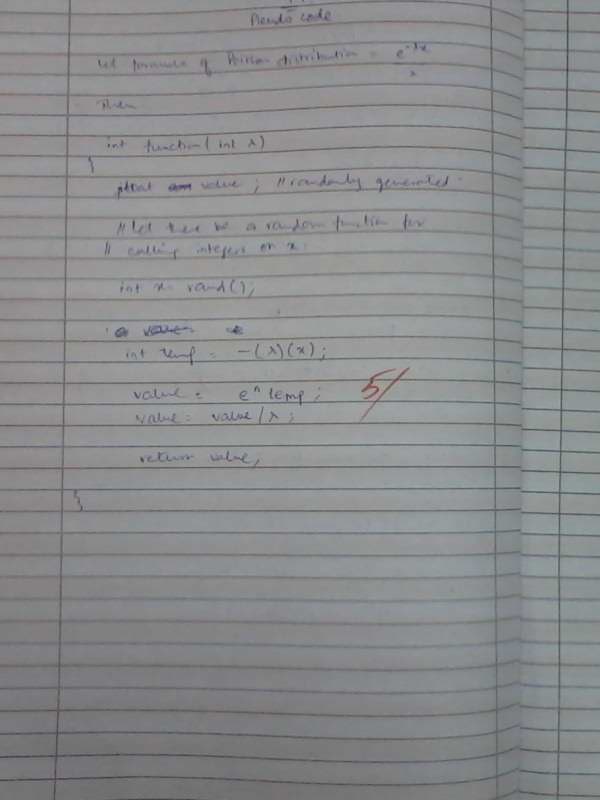 Pseudo code
Let formula of Poisson distribution = e^-λx
x
Then
int function( int λ)
{
float value ; // randomly generated.
// let there be a random function for
// calling integers on x.
int x = rand();
int temp = -(λ)(x);
value = e^temp;
5/
value = value/λ;
return value;
}